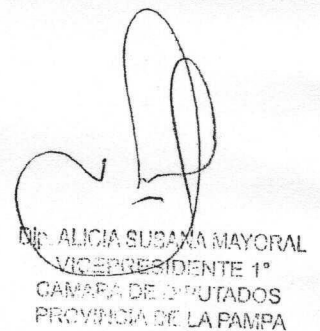 Dip. ALICIA SUSANA MAYORAL
VICEPRESIDENTE 1°
CÁMARA DE DIPUTADOS
PROVINCIA DE LA PAMPA